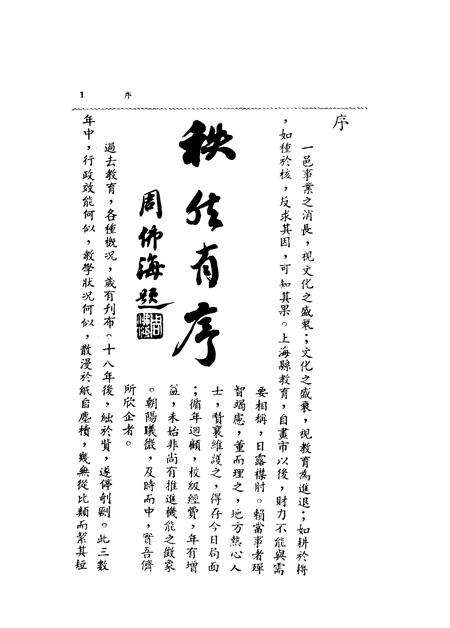 1 序
序
一邑事業之消長，視文化之盛衰；文化之盛衰，視教育為進退；如耕於得
，如種於核，反求其因，可知其果。上海縣教育，自畫市以後，財力不能與需
要相稱，日露襟肘。賴當事者殫
智竭慮，董而理之，地方熱心人
士，贊襄維護之，得存今日局面
；循年迴顧，校級經費，年有增
益，未始非尚有推進機能之徵象
。朝陽曦微，及時而中，實吾儕
所欣企者。
秩然有序
周佛海題
過去教育，各種概況，歲有刊布。十八年後，絀於貲，遂停剞劂。此三數
年中，行政效能何似，教學狀況何似，散漫於紙塵積，幾無從比類而絜其短